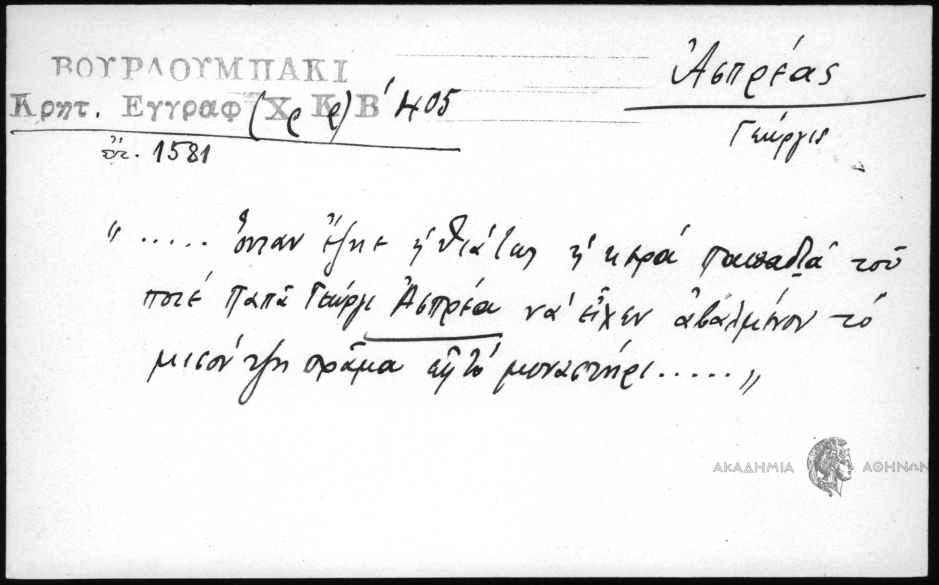 ΒΟΥΡΛΟΥΜΠΑΚΙ
Κρητ. Εγγραφ (ρρ) Χ Κ Β' 405
ἔτ. 1581
Ἀσπρέας
Γεώργις
"..... ὅταν ἔζησε ἡ κερά παπαδιά τοῦ
ποτέ Παπᾶ Γεώργι Ἀσπρέα νά εἶχεν ἀβαλμένον τό
μισόν τζη πρᾶμα εἰς τό μοναστήρι.....„
ΑΚΑΔΗΜΙΑ ΑΘΗΝΩΝ